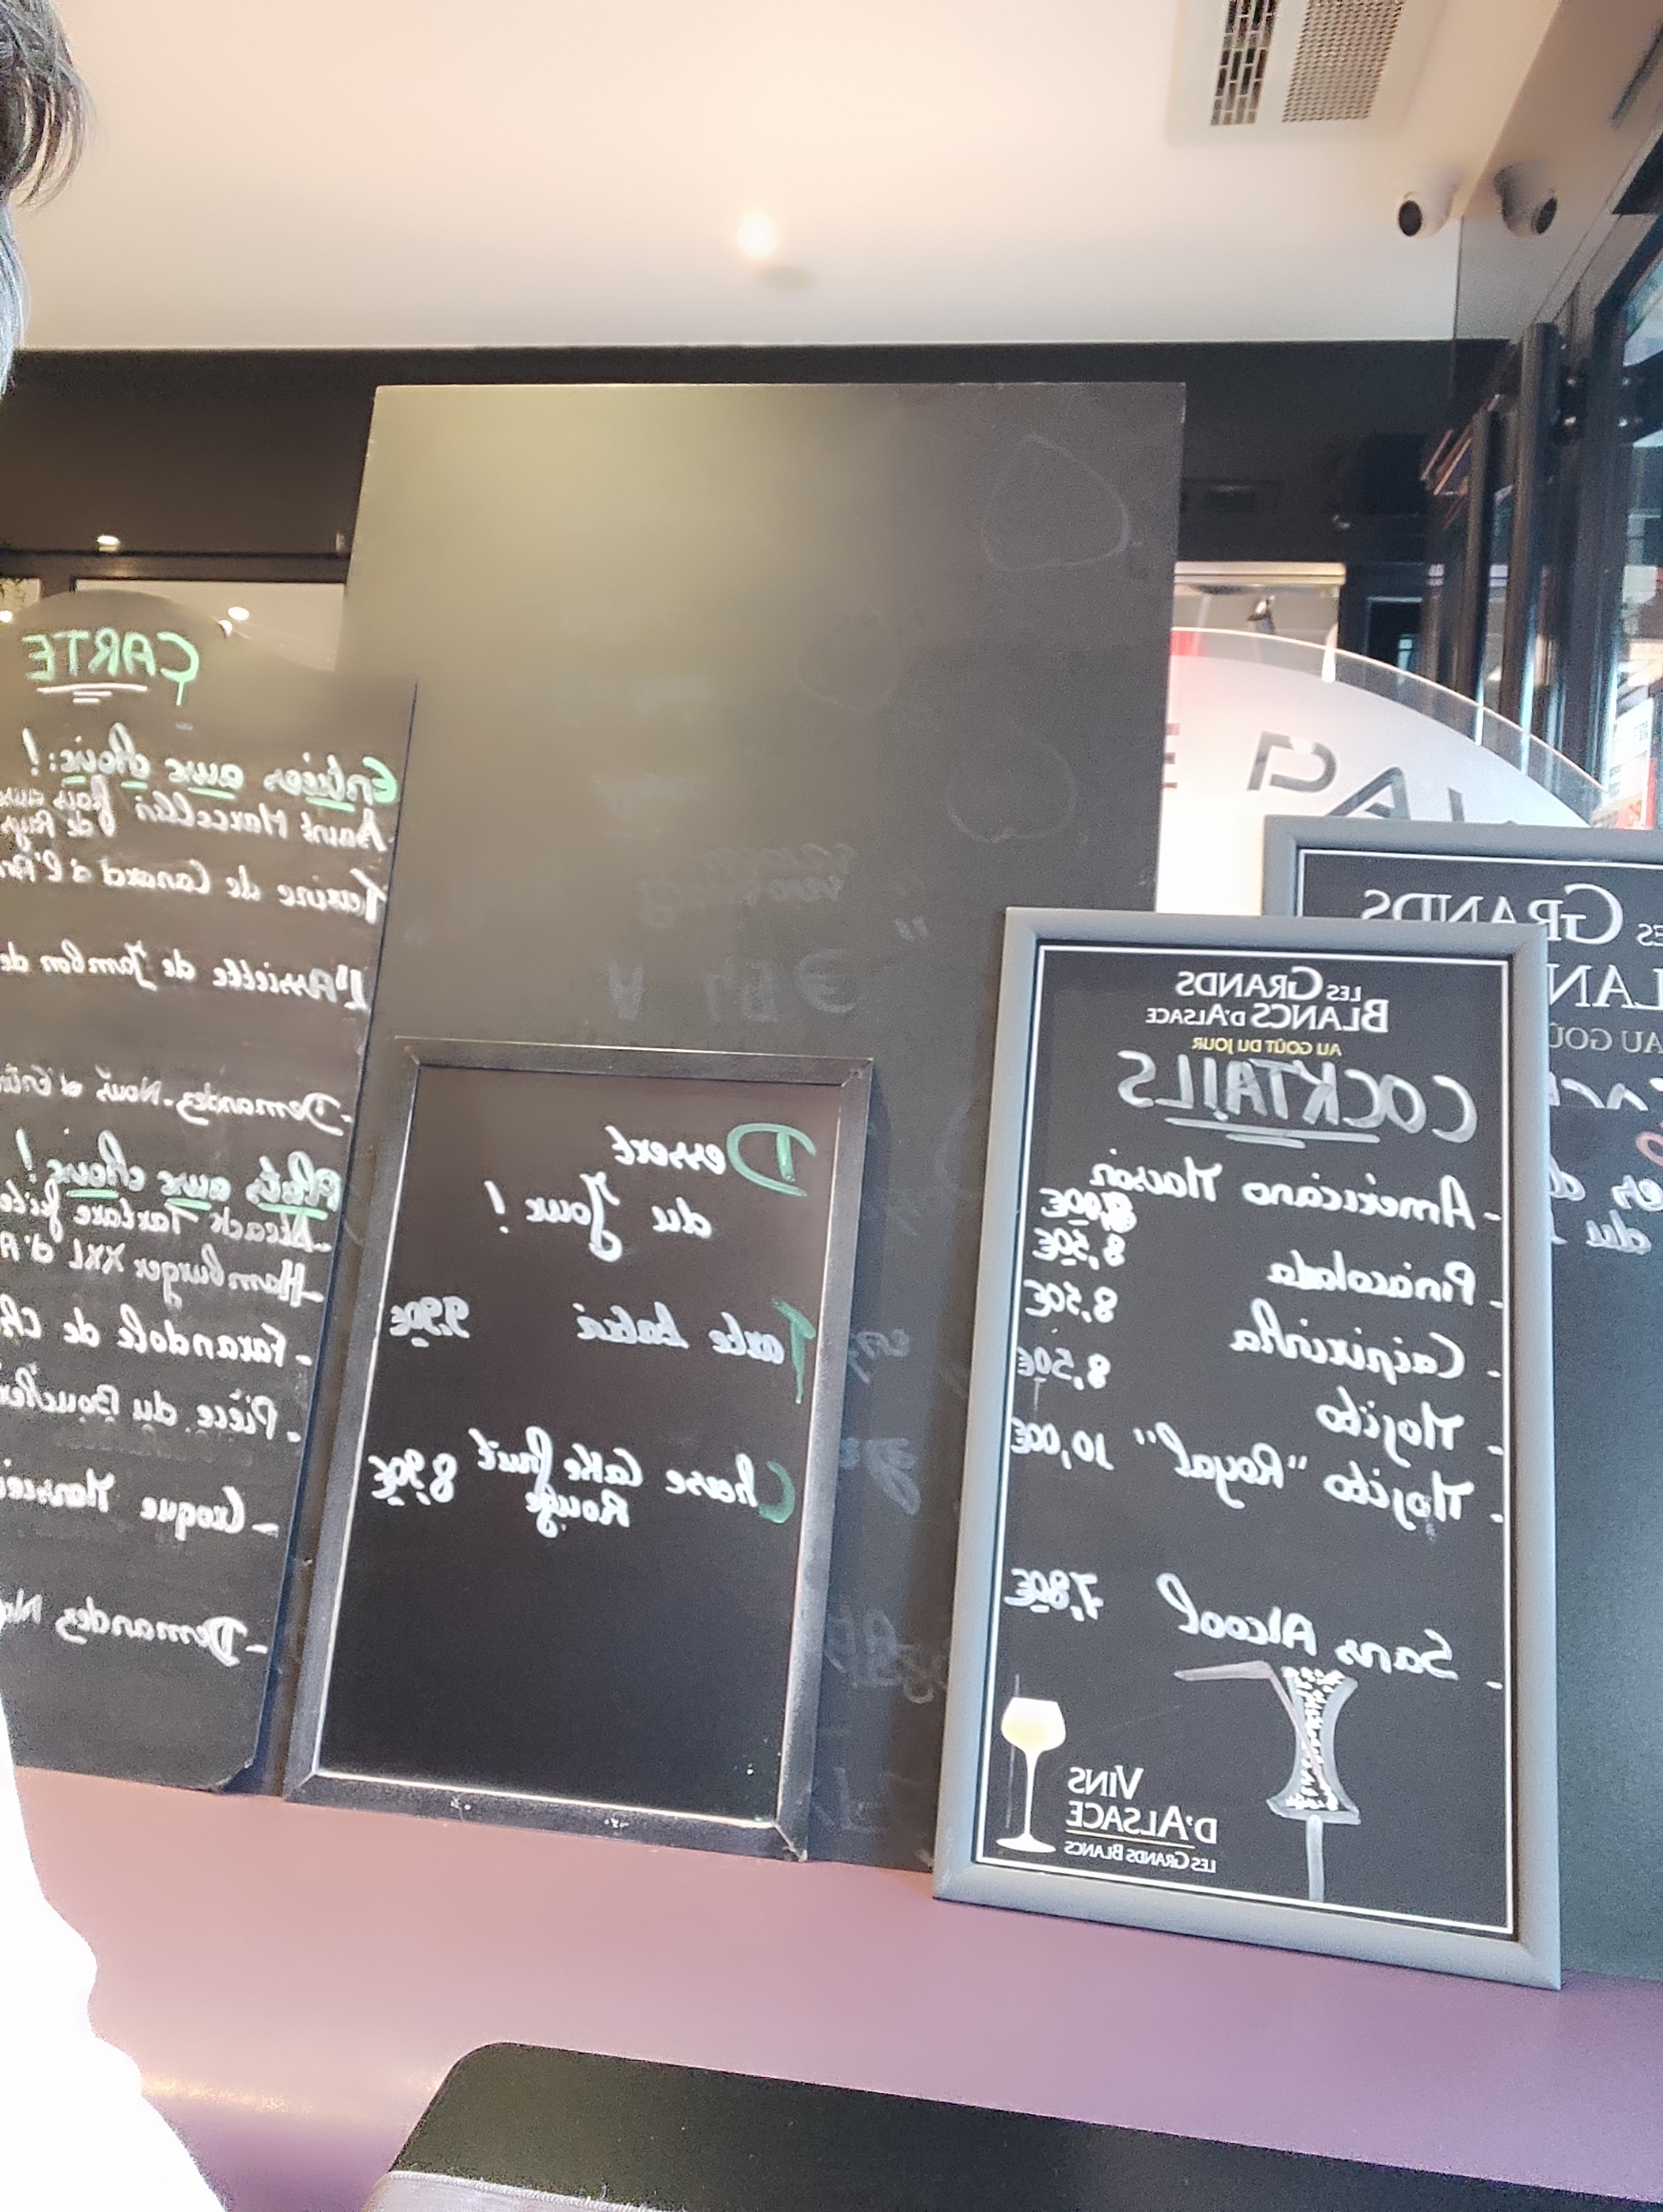 CARTE
Entrées aux choix:!
- Saint Marcellin frais aux
de Pays
Terrine de Canard à l'Ar
L'Assiette de Jambon de
- Demandez-Nous d'Entr
Plats aux choix!
- Steack Tartare
- Hamburger XXL d'A
- Farandole de Ch
- Pièce du Boucher
- Croque Monsie
- Demandez No
Dessert
du Jour !
Tarte 9,90€
Cheese Cake fruit 8,90€
Rouge
LES GRANDS
BLANCS D'ALSACE
AU GOÛT DU JOUR
COCKTAILS
- Américano Maison 8,00€
- Pinacolada 8,50€
- Caipirinha 8,50€
- Mojito 8,50€
- Mojito "Royal" 10,00€
- Sans Alcool 7,80€
VINS
D'ALSACE
LES GRANDS BLANCS
ES GRANDS
LAN
AU GOÛ